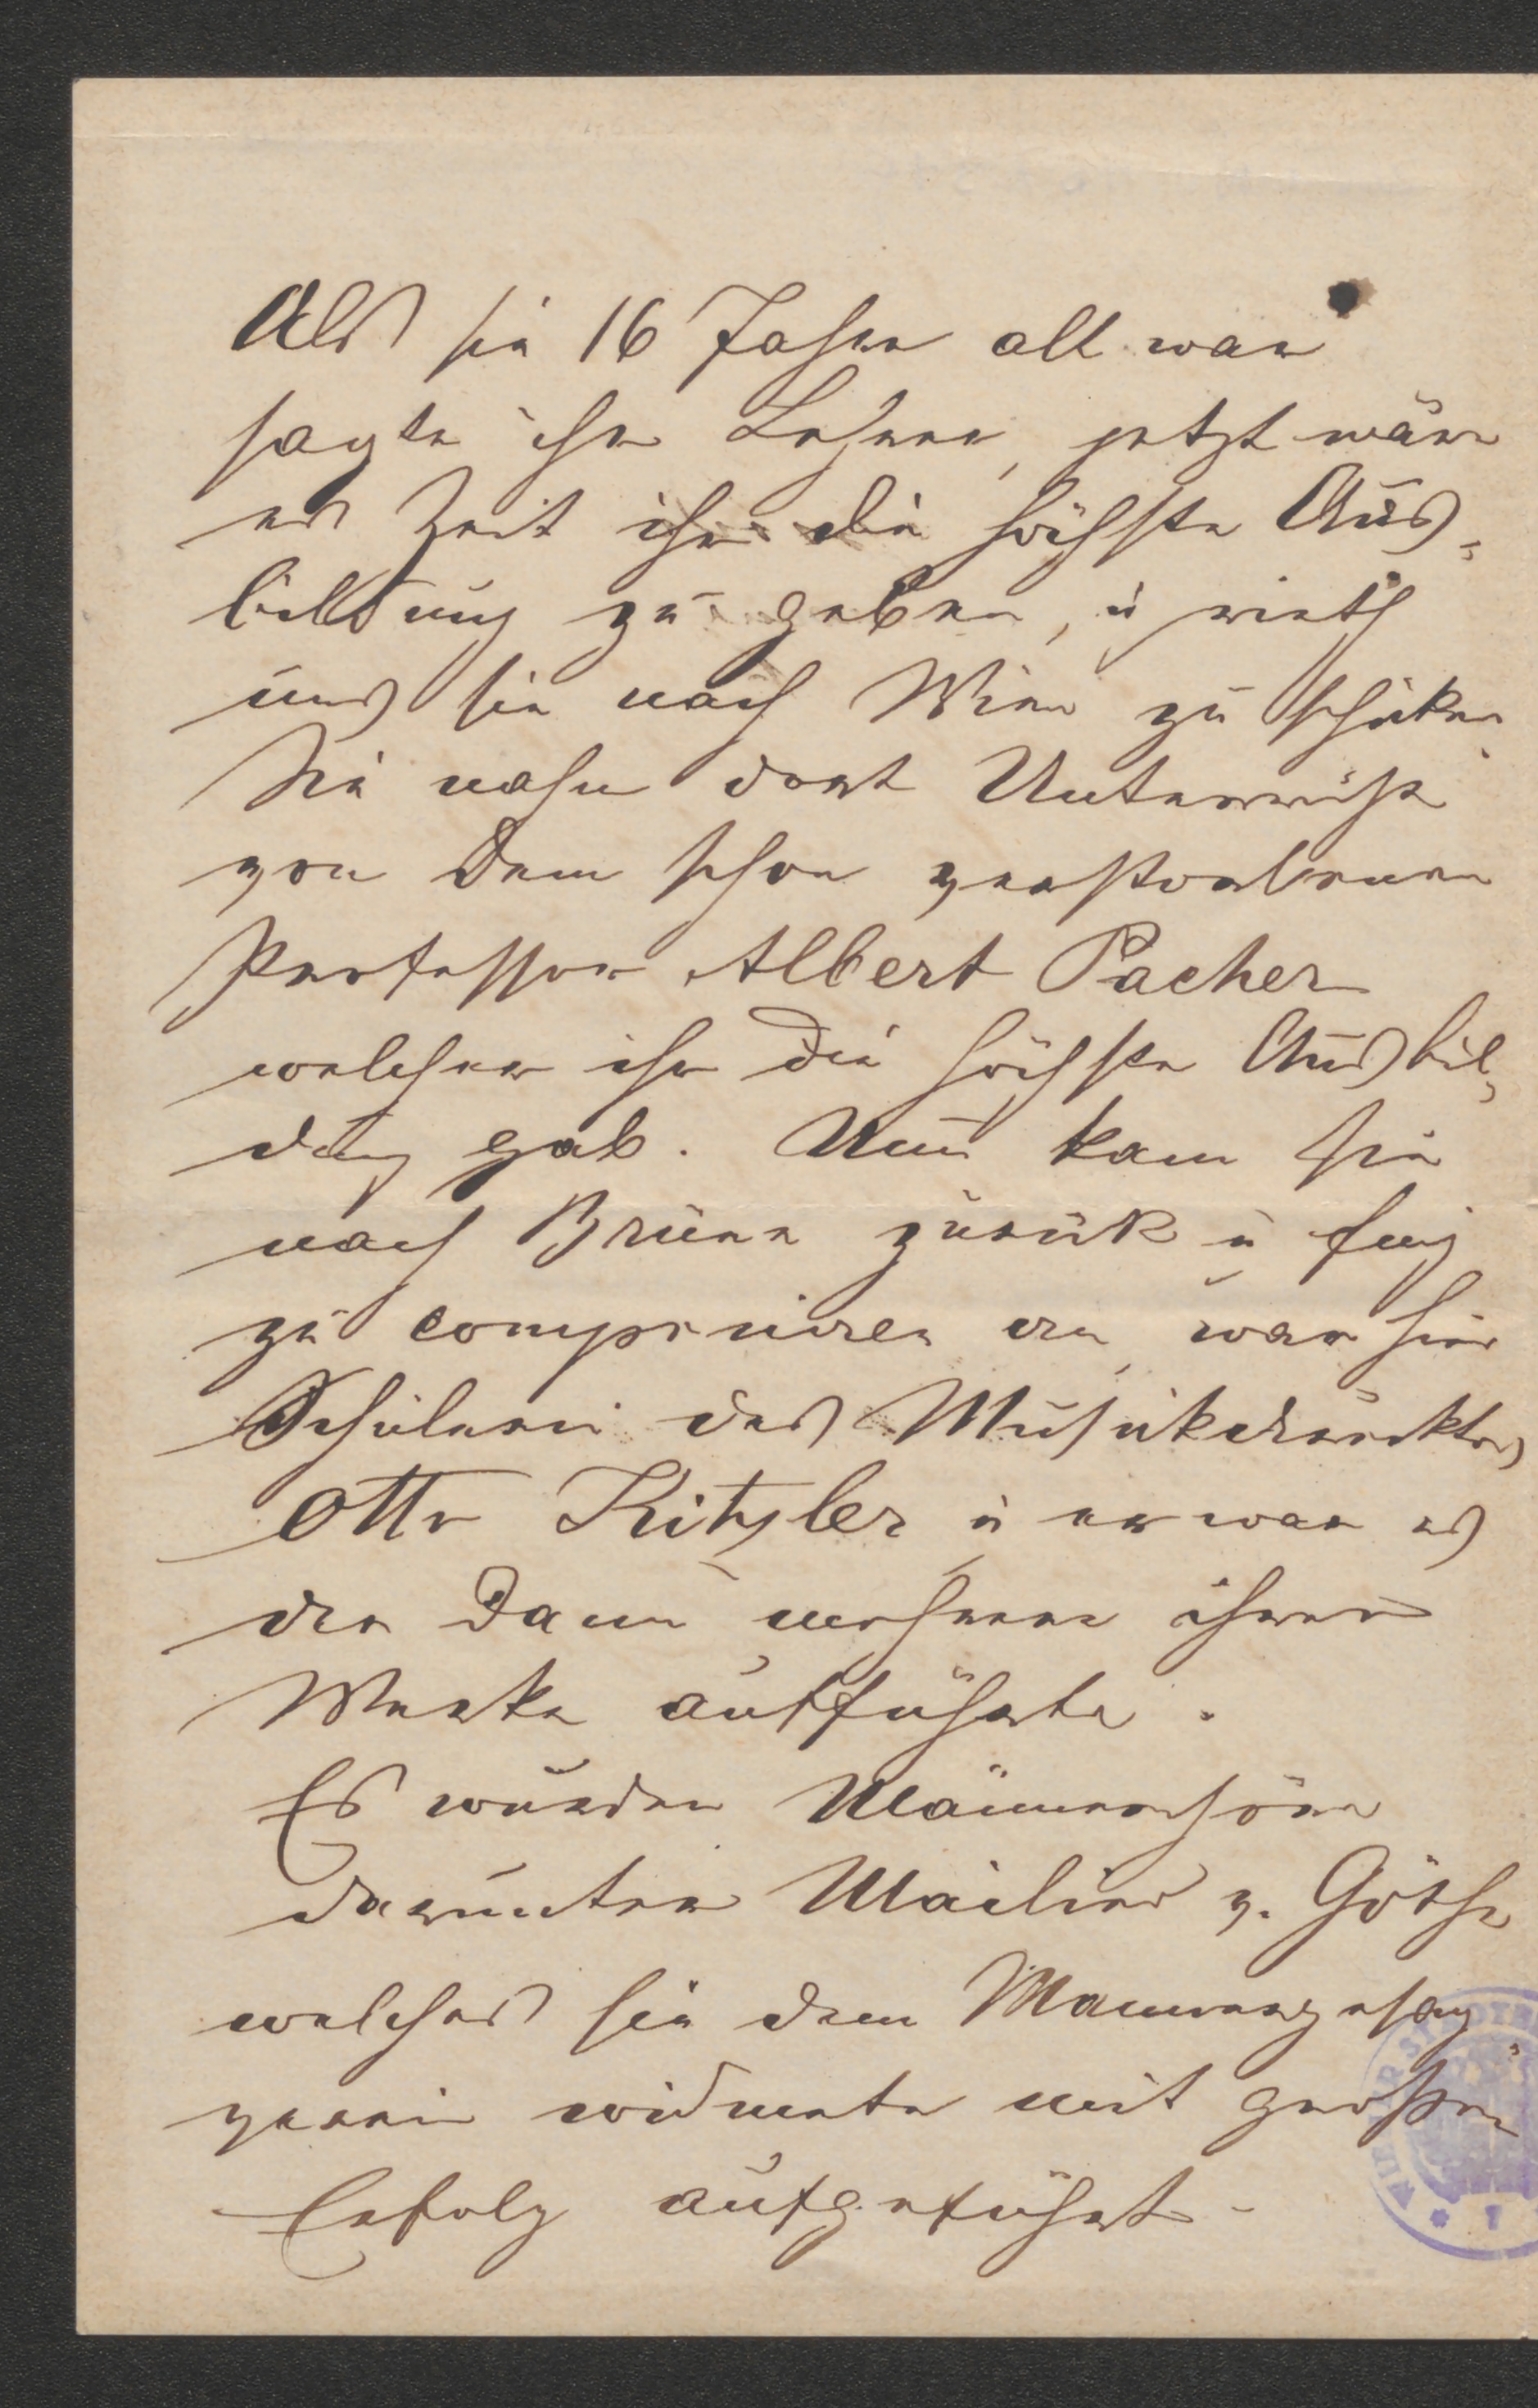 Als sie 16 Jahre alt war
sagte ihr Lehrer, jetzt wäre
es Zeit ihr die höchste Aus=
bildung zu geben, u rieth
uns sie nach Wien zu schicken
Sie nahm dort Unterricht
von dem schon verstorbenen
Professor Albert Pacher
welcher ihr die höchste Ausbil,
dung gab. Nun kam sie
nach Brünn zurük u fing
zu componieren an, war hier
Schülerin des Musikdirecktors
Otto Kitzler u er war es
der dann mehrere ihrer
Werke aufführte.
Es wurden Männerchöre
darunter Mailied v. Göthe
welches sie dem Männergesang
verein widmete mit großem
Erfolg aufgeführt.